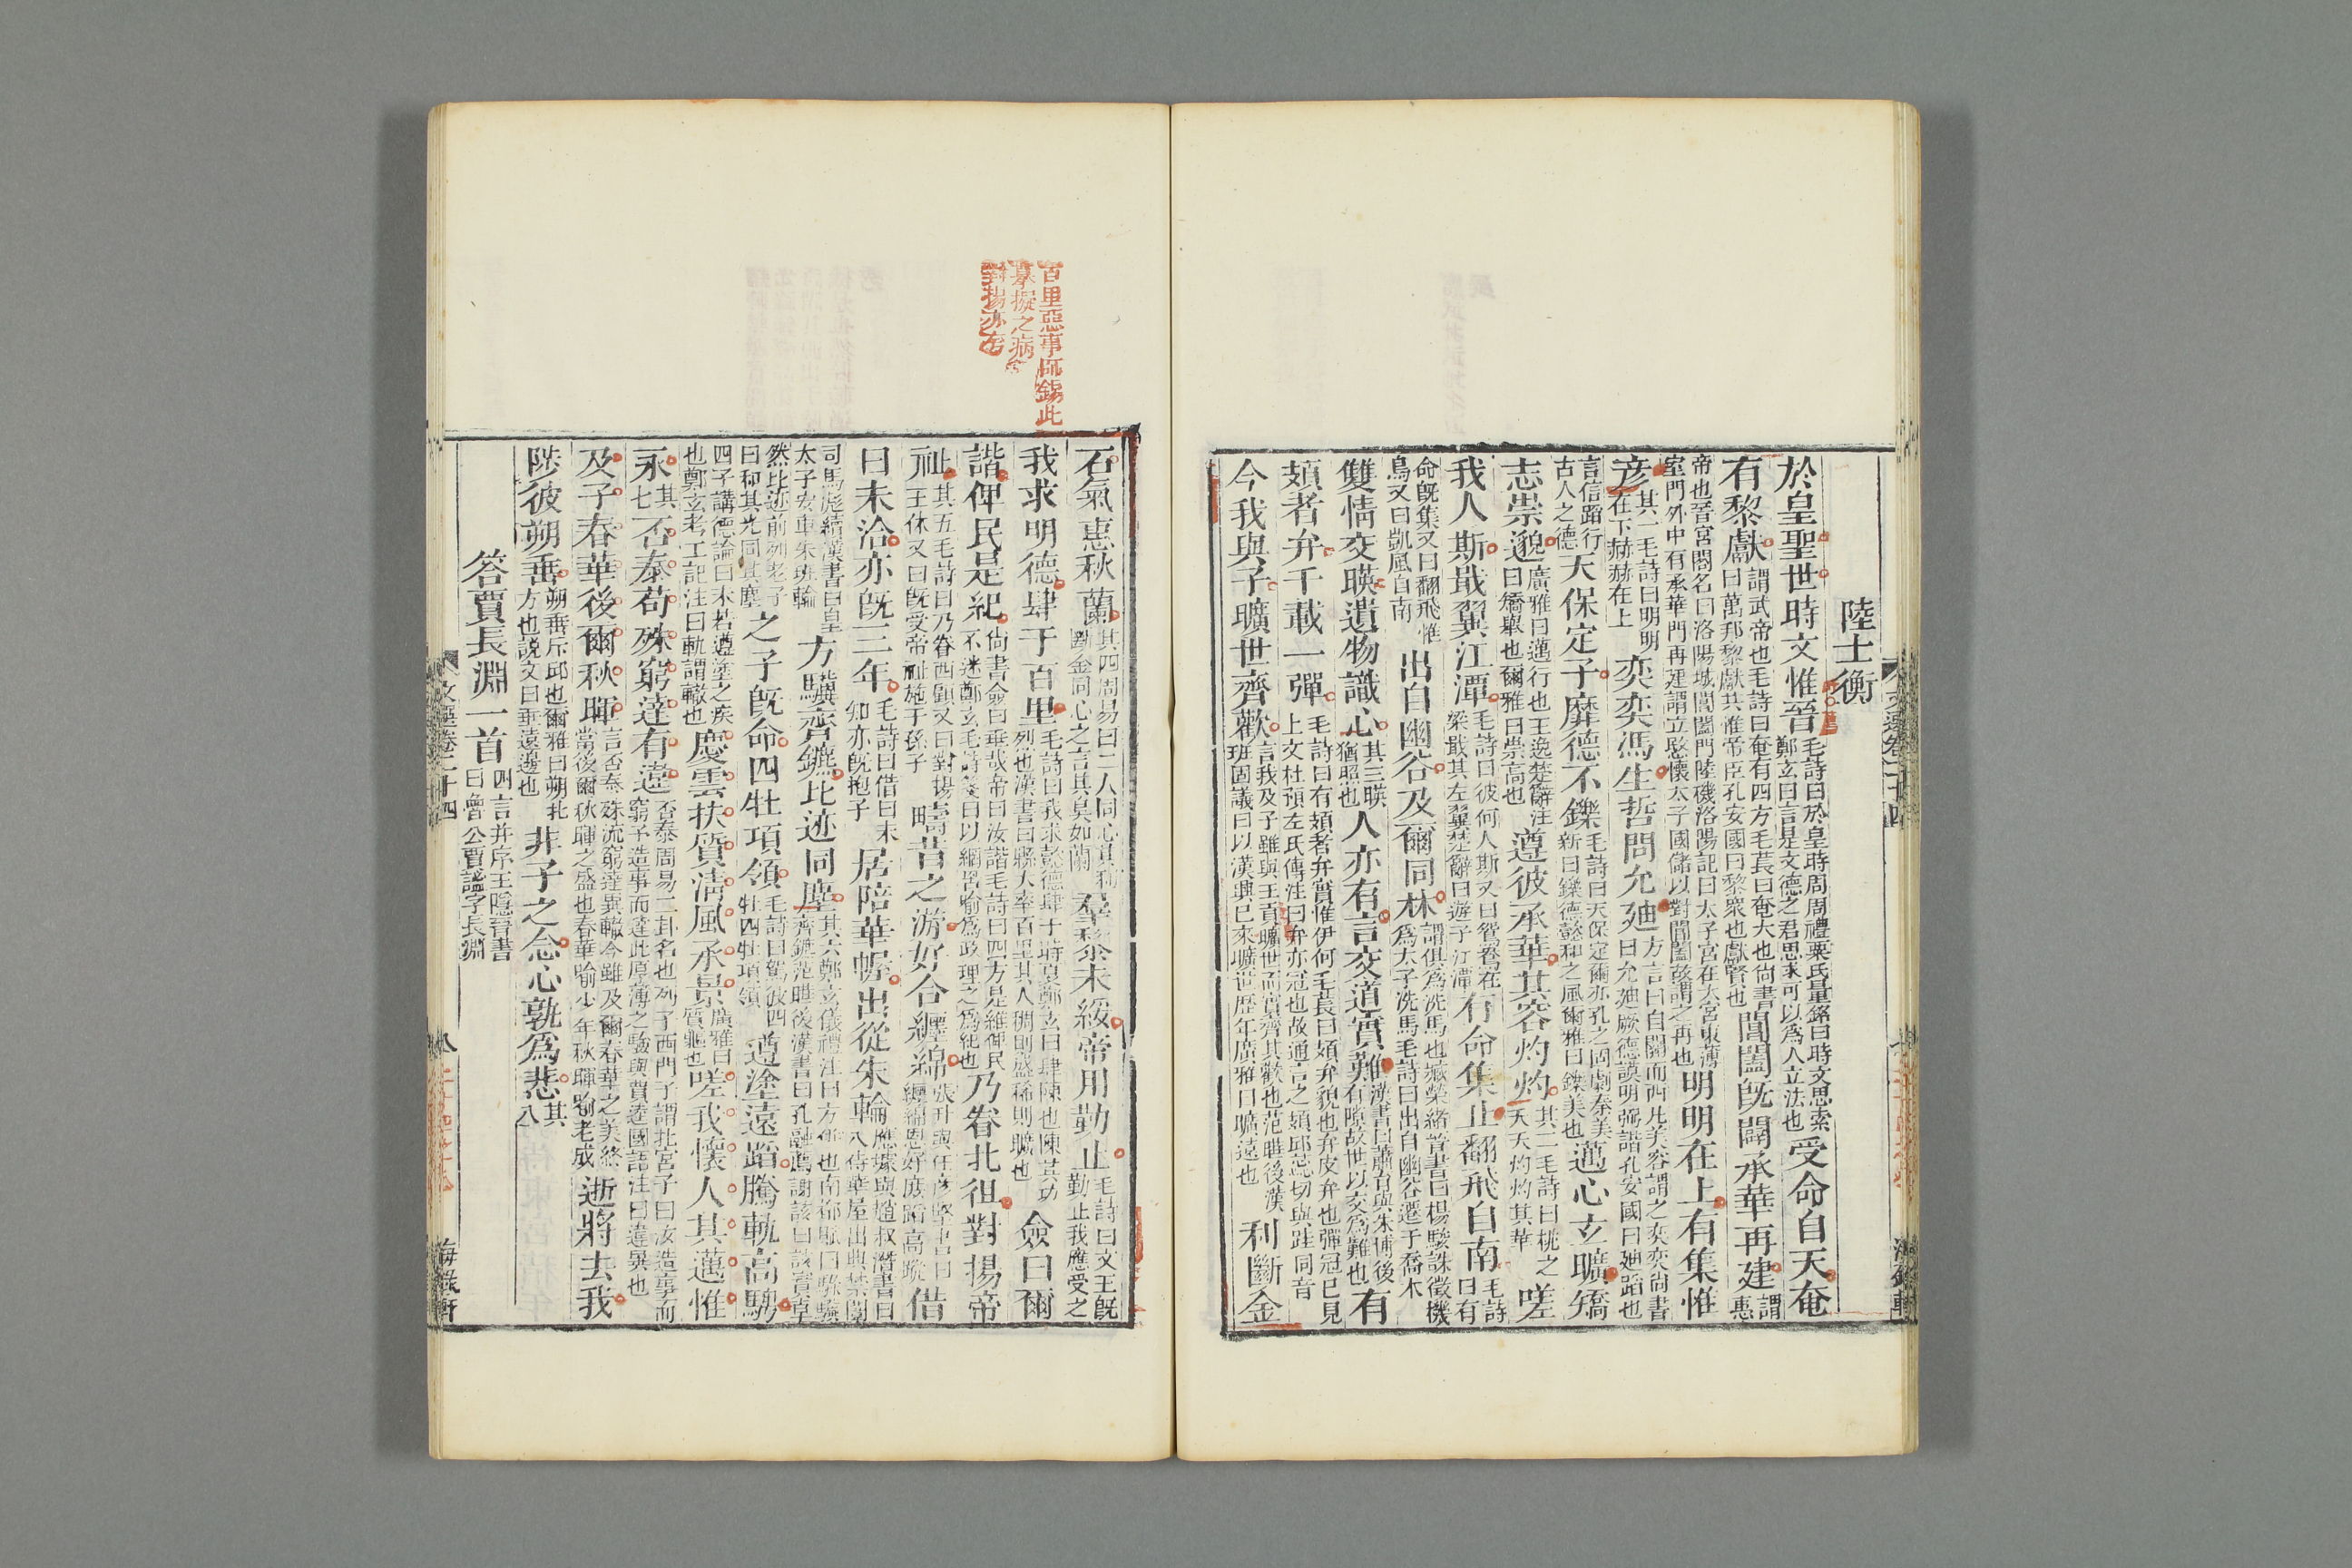 陸士衡
於皇聖世時文惟晉
毛詩曰於皇時周周禮㮚氏量銘曰時文思索
鄭玄曰言是文德之君思求可以爲人立法也
受命自天奄
有黎獻
謂武帝也毛詩曰奄有四方毛萇曰奄大也尚書
曰萬邦黎獻其惟帝臣孔安國曰黎衆也獻賢也
閶闔旣闢承華再建
謂
愍
帝也晉宮閣名曰洛陽城閶闔門陸機洛陽記曰太子宮在大宮東薄
室門外中有承華門再建謂立愍懷太子國儲以對閶闔故謂之再也
明明在上有集惟
彥
其一毛詩曰明明
在下赫赫在上
奕奕馮生哲問允廸
方言曰自關而西凡美容謂之奕奕尚書
曰允廸厥德謨明弼諧孔安國曰廸蹈也
言信蹈行
古人之德
天保定子靡德不鑠
毛詩曰天保定爾亦孔之固劇秦美
新曰鑠德懿和之風爾雅曰鑠美也
邁心玄曠矯
志崇邈
廣雅曰邁行也王逸楚辭注
曰矯舉也爾雅曰崇高也
遵彼承華其容灼灼
其二毛詩曰桃之
夭夭灼灼其華
嗟
我人斯戢翼江潭
毛詩曰彼何人斯又曰鴛鴦在
梁戢其左翼楚辭曰遊子江潭
有命集止翻飛自南
毛詩
曰有
命旣集又曰翻飛惟
鳥又曰凱風自南
出自幽谷及爾同林
謂俱爲洗馬也臧榮緒晉書曰楊駿誅徵機
爲太子洗馬毛詩曰出自幽谷遷于喬木
雙情交暎遺物識心
其三暎
猶照也
人亦有言交道實難
漢書曰蕭育與朱博後
有隙故世以交爲難也
有
頍者弁千載一彈
毛詩曰有頍者弁實惟伊何毛萇曰頍弁貌也弁皮弁也彈冠已見
上文杜預左氏傳注曰弁亦冠也故通言之頍邱蕋切與跬同音
今我與子曠世齊歡
言我及子雖與王貢曠世而實齊其歡也范曄後漢
班固議曰以漢興已來曠世歷年廣雅曰曠遠也
利斷金
石氣惠秋蘭
其四周易曰二人同心其利
斷金同心之言其臭如蘭
羣黎未綏帝用勤止
毛詩曰文王旣
勤止我應受之
我求明德肆于百里
毛詩曰我求懿德肆于時夏鄭玄曰肆陳也陳其功
列也漢書曰縣大率百里其人稠則盛稀則曠也
僉曰爾
諧俾民是紀
尚書僉曰垂哉帝曰汝諧毛詩曰四方是維俾民
不迷鄭玄毛詩箋曰以網罟喻爲政理之爲紀也
乃眷北徂對揚帝
祉
其五毛詩曰乃眷西顧又曰對揚
王休又曰旣受帝祉施于孫子
疇昔之游好合纏綿
纏綿恩好庶蹈高蹤
借
曰未洽亦旣三年
毛詩曰借曰未
知亦旣抱子
居陪華幄出從朱輪
應璩與趙叔潛書曰
入侍華屋出典禁闈
司馬彪續漢書曰皇
太子安車朱班輪
方驥齊鑣比迹同塵
其六鄭玄儀禮注曰方併也南都賦曰騄驥
齊鑣范曄後漢書曰孔融薦謝該曰該實卓
然比迹前列老子
曰和其光同其塵
之子旣命四牡項領
毛詩曰駕彼四
牡四牡項領
遵塗遠蹈騰軌高騁
四子講德論曰未若遵塗之疾
也鄭玄考工記注曰軌謂轍也
慶雲扶質淸風承景
廣雅曰
質軀也
嗟我懷人其邁惟
永
其
七
否泰苟殊窮達有違
否泰周易二卦名也列子西門子謂北宮子曰汝造事而
窮予造事而達此厚薄之驗與賈逵國語注曰違異也
及子春華後爾秋暉
言否泰殊流窮達異轍今雖及爾春華之美終
當後爾秋暉之盛也春華喻少年秋暉喻老成
逝將去我
陟彼朔垂
朔垂斥邱也爾雅曰朔北
方也說文曰垂遠邊也
非子之念心孰爲悲
其
八
答賈長淵一首
四言幷序王隱晉書
曰魯公賈謐字長淵
文選卷二十四
八
海錄軒
百里惡事師錫此
摹擬之病
對揚亦